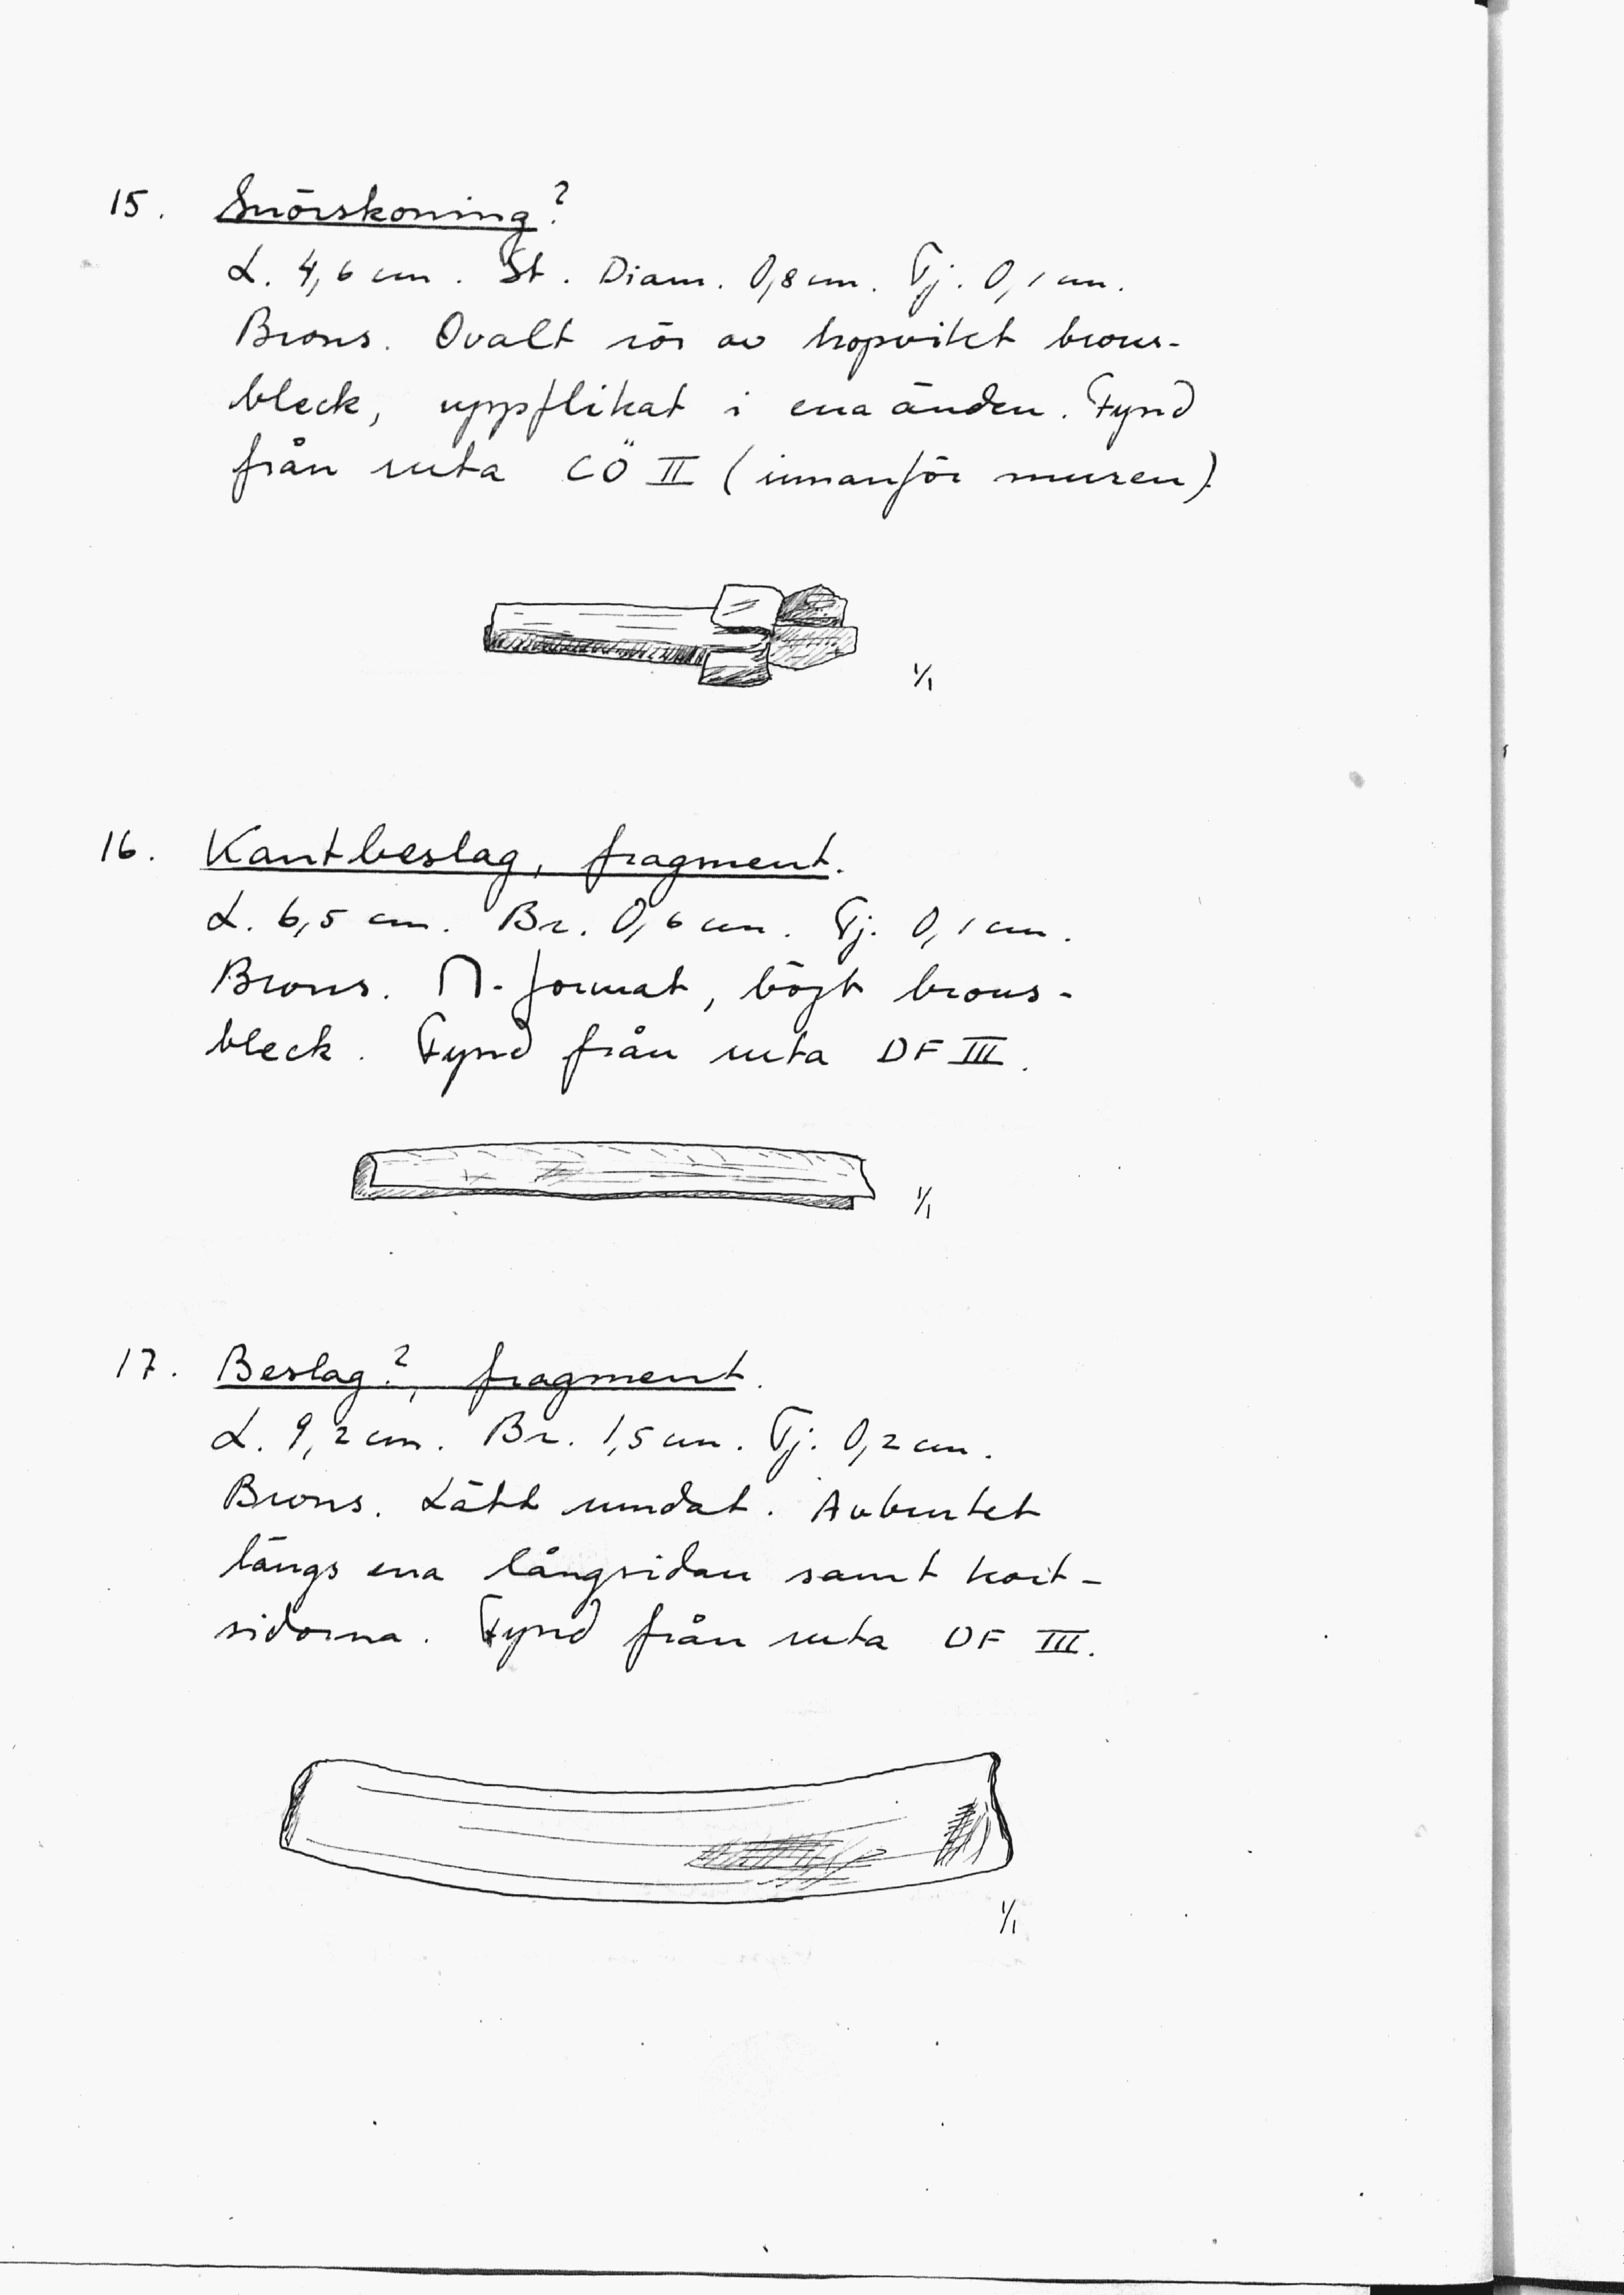 15. Snörskoning?
L. 4,6 cm. St. Diam. 0,8 cm. Tj. 0,1 cm.
Brons. Ovalt rör av hopvikt brons-
bleck, uppflikat i ena änden. Fynd
från ruta CÖ II (innanför muren).
1/1
16. Kantbeslag, fragment.
L. 6,5 cm. Br. 0,6 cm. Tj. 0,1 cm.
Brons. ∩-format, böjt brons-
bleck. Fynd från ruta DF III.
1/1
17. Beslag?, fragment.
L. 9,2 cm. Br. 1,5 cm. Tj. 0,2 cm.
Brons. Lätt rundat. Avbrutet
längs ena långsidan samt kort-
sidorna. Fynd från ruta DF III.
1/1